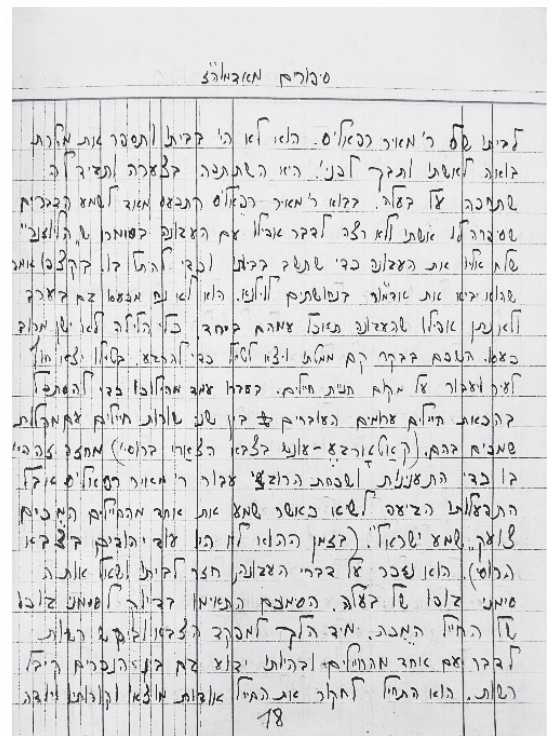 סיפורים מאדמוה"ז
לביתו של ר' מאיר רפאל'ס. הוא לא הי' בביתו ותספר את מטרת
בואה לאשתו ותבך לפני'. היא השתתפה בצערה ותגיד לה
שתחכה על בעלה. בבוא ר' מאיר רפאל'ס התכעס מאד לשמע הדברים
שסיפרה לו אשתו ולא רצה לדבר אפילו עם העגונה באומרו ש"הלוזנר"
שלח אליו את העגונה כדי שתשב בביתו וכדי להתל בו. בקצפו אמר
שהוא יביא את אדמו"ר בנחושתים לוילנא. הוא לא נח מכעסו גם בערב
ולא נתן אפילו שהעגונה תאכל עמהם ביחד. כל הלילה לא ישן מרוב
כעס. השכם בבקר קם ממטתו ויצא לטייל כדי להרגע. בטיולו יצא חוץ
לעיר ויעבור על מקום חנית חיילים. בעברו עמד מהילוכו כדי להסתכל
בהכאת חיילים ערומים העוברים בין שני שורות חיילים עם מקלות
שמכים בהם. (קאלאווארבע - עונש בצבא הצארי ברוסי') מחזה זה הי'
בו כדי התענינות ושכחת הרוגז עבור ר' מאיר רפאל'ס אבל
התפעלותו הגיעה לשיא כאשר שמע את אחד מהחיילים המכים
צועק "שמע ישראל". (בזמן ההוא לא היו עוד יהודים בצבא
הרוסי). הוא נזכר על דברי העגונה, חזר לביתו ושאל אותה
סימני גופו של בעלה. הסימנים התאימו בדיוק לסימני גופו
של החייל המכה. מיד הלך למפקד הצבא וביקש רשות
לדבר עם אחד מהחיילים ובהיותו ידוע גם בין הנכרים קיבל
רשות. הוא התחיל לחקור את החייל אודות מוצאו וקורותיו ויודה
18